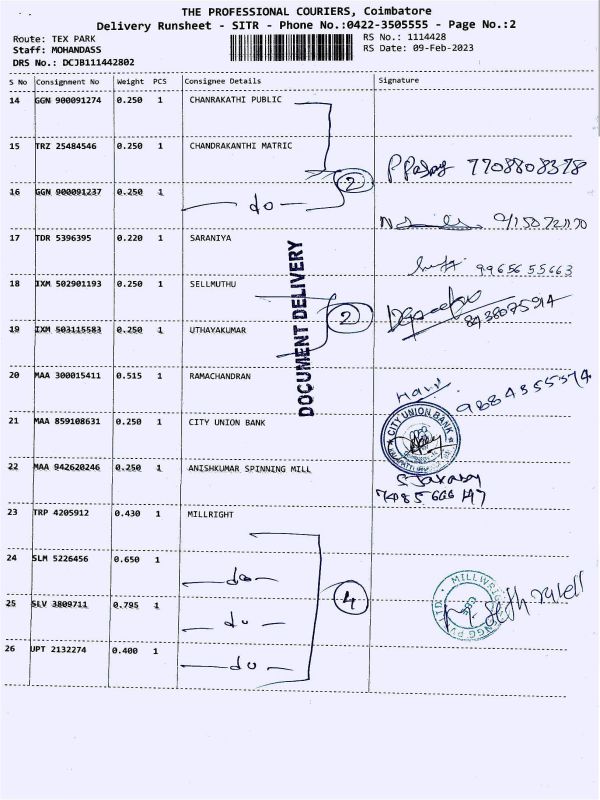 THE PROFESSIONAL COURIERS, Coimbatore
Delivery Runsheet - SITR - Phone No.:0422-3505555 - Page No.:2
Route: TEX PARK RS No.: 1114428
Staff: MOHANDASS RS Date: 09-Feb-2023
DRS No.: DCJB111442802
S No Consignment No Weight PCS Consignee Details Signature
14 GGN 900091274 0.250 1 CHANRAKATHI PUBLIC
15 TRZ 25484546 0.250 1 CHANDRAKANTHI MATRIC
7708808378
2
16 GGN 900091237 0.250 1 -do-
17 TDR 5396395 0.220 1 SARANIYA
9965655663
18 IXM 502901193 0.250 1 SELLMUTHU
2
8938075914
19 IXM 503115583 0.250 1 UTHAYAKUMAR
DOCUMENT DELIVERY
20 MAA 300015411 0.515 1 RAMACHANDRAN
Hari 9884355374
21 MAA 859108631 0.250 1 CITY UNION BANK
CITY UNION BANK
22 MAA 942620246 0.250 1 ANISHKUMAR SPINNING MILL
23 TRP 4205912 0.430 1 MILLRIGHT
24 SLM 5226456 0.650 1 -do-
4
25 SLV 3809711 0.795 1 -do-
26 UPT 2132274 0.400 1 -do-